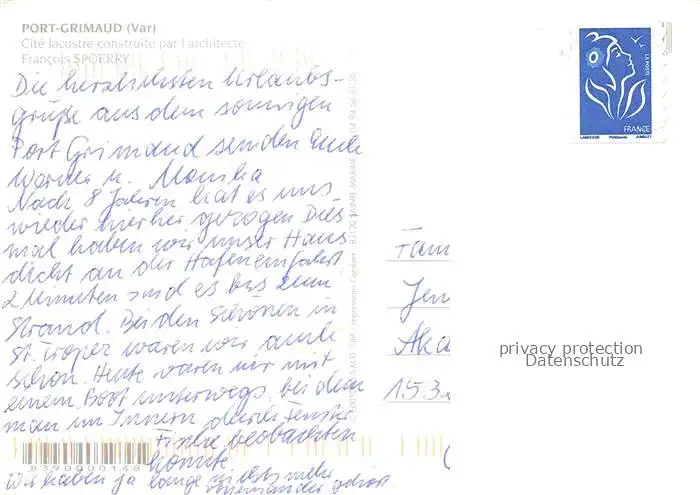 PORT-GRIMAUD (Var)
Cité lacustre construite par l'architecte
François SPOERRY
Die herzlichsten Urlaubs-
grüße aus dem sonnigen
Port Grimaud senden Euch
Werner u. Monika
Nach 8 Jahren hat es uns
wieder hierher gezogen Dies
mal haben wir unser Haus
dicht an der Hafeneinfahrt.
2 Minuten sind es bis zum
Strand. Bei den Schönen in
St. Tropez waren wir auch
schon. Heute waren wir mit
einem Boot unterwegs, bei dem
man im Innern durch Fenster
Fische beobachten
konnte.
Wir haben ja lange nichts mehr
voneinander gehört
8390000148
LA POSTE
FRANCE
Fam
Jen
Aka
153
privacy protection
Datenschutz